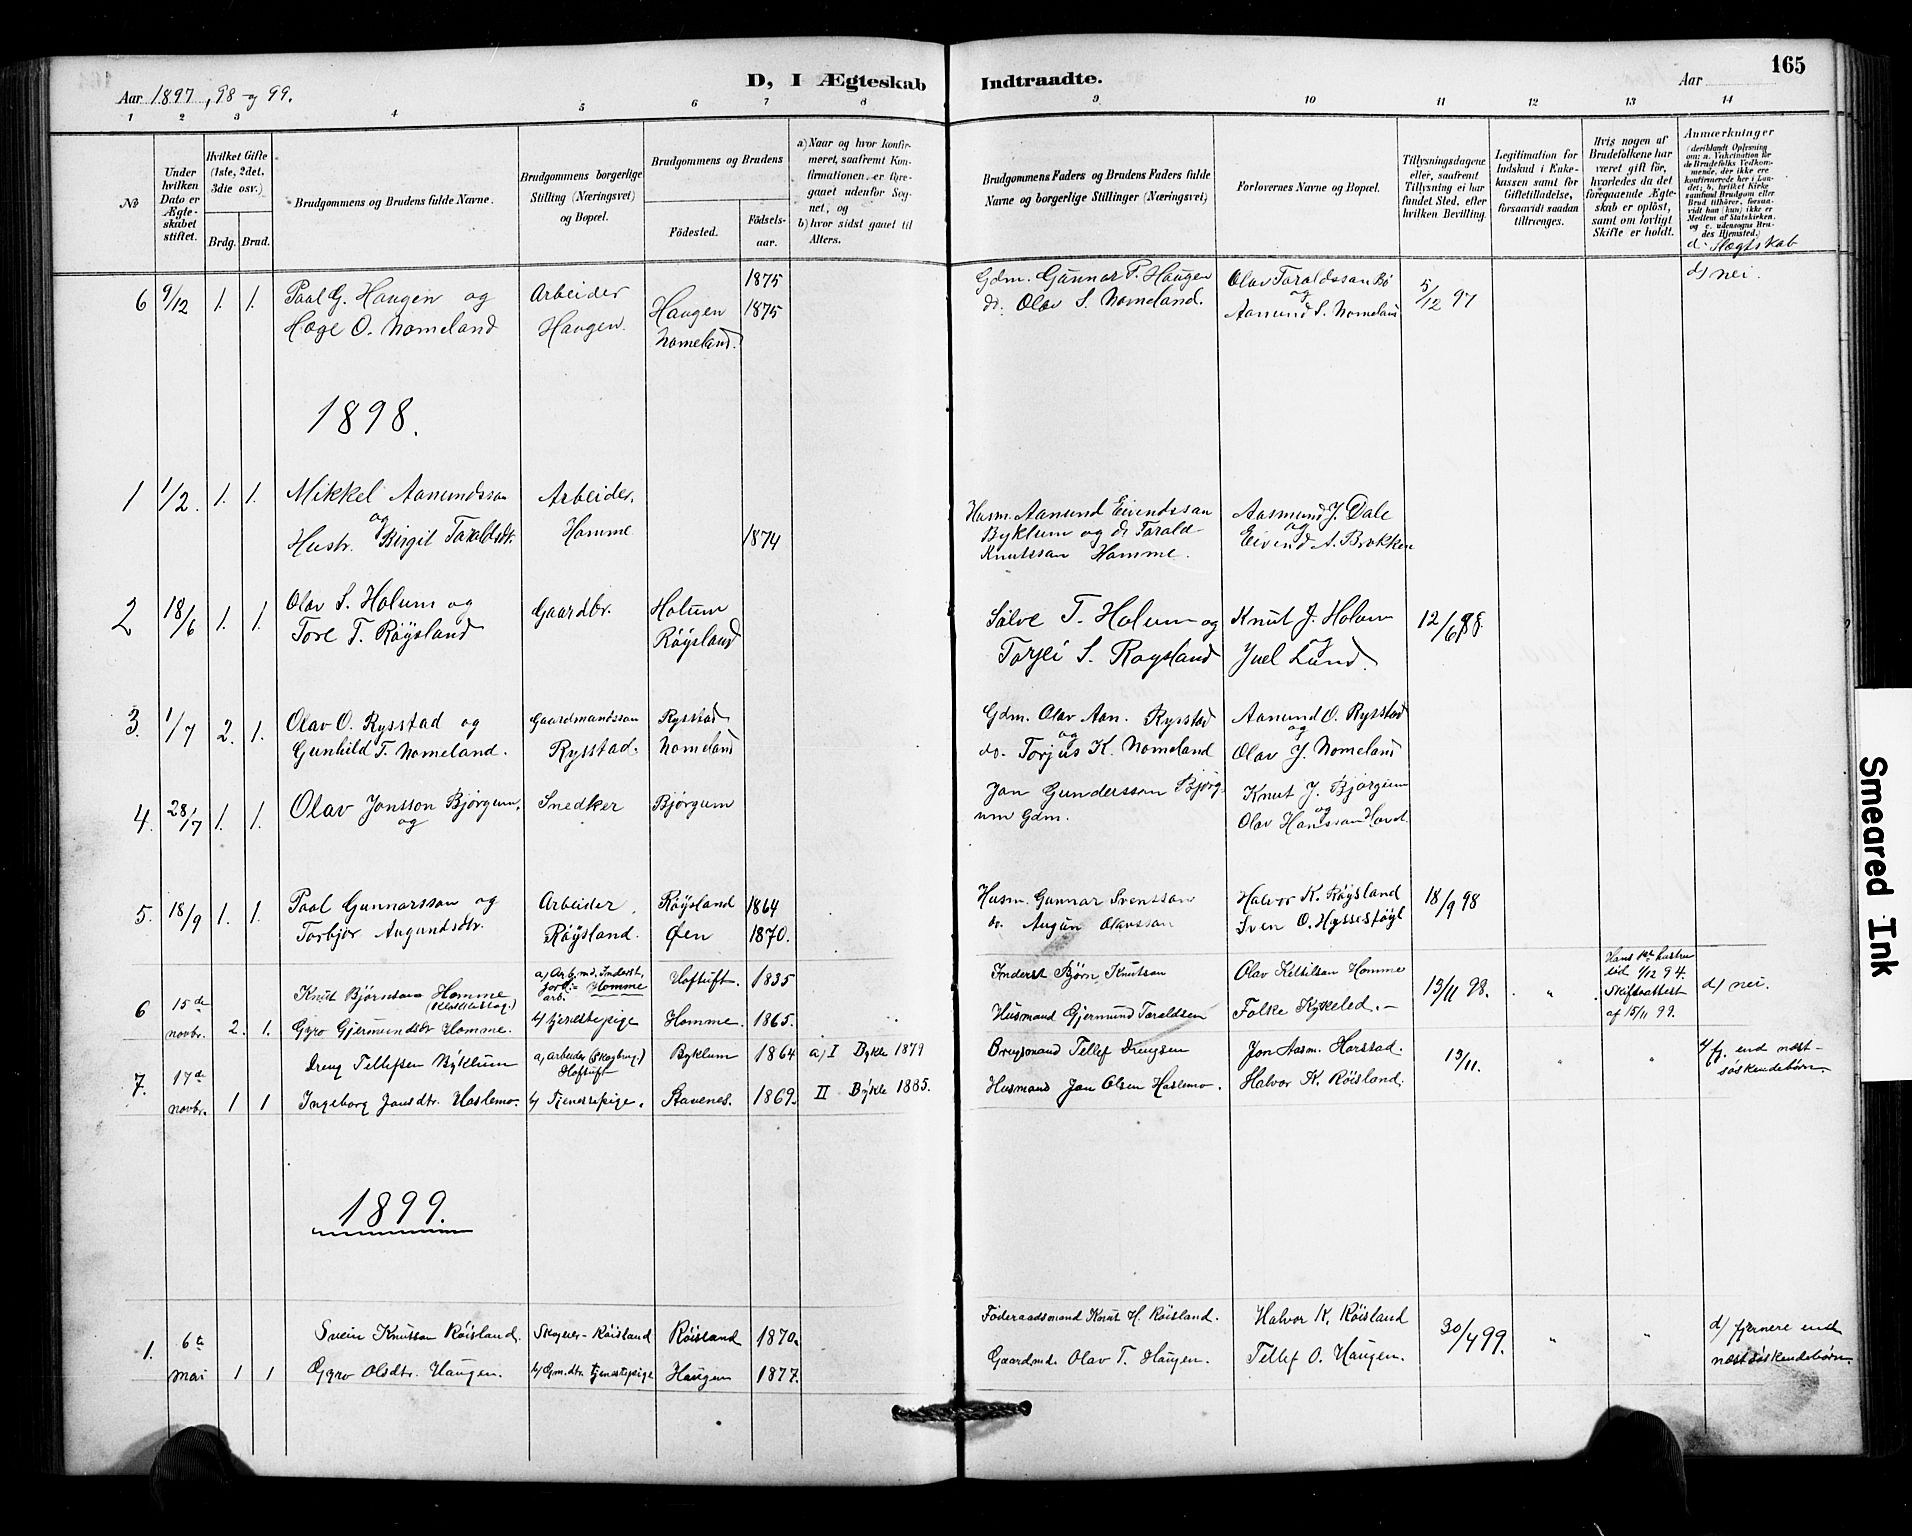 165
Aar 1897, 98 og 99.
D, I Ægteskab Indtraadte.
Aar
1 2 3 4 5 6 7 8 9 10 11 12 13 14
No
Under hvilken Dato er Ægteskabet stiftet.
Hvilket Gifte (1ste, 2det, 3die osv.)
Brdg. Brud.
Brudgommens og Brudens fulde Navne.
Brudgommens borgerlige Stilling (Næringsvei) og Bopæl.
Brudgommens og Brudens
Fødested.
Fødselsaar.
a) Naar og hvor konfirmeret, saafremt Konfirmationen er foregaaet udenfor Sognet, og
b) hvor sidst gaaet til Alters.
Brudgommens Faders og Brudens Faders fulde Navne og borgerlige Stillinger (Næringsvei)
Forlovernes Navne og Bopæl.
Tillysningsdagene eller, saafremt Tillysning ei har fundet Sted, efter hvilken Bevilling.
Legitimation for Indskud i Enkekassen samt for Giftetilladelse, forsaavidt saadan tiltrænges.
Hvis nogen af Brudefolkene har været gift før, hvorledes da det foregaaende Ægteskab er opløst, samt om lovligt Skifte er holdt.
Anmærkninger (deriblandt Oplysning om: a. Vakcination for de Brudefolks Vedkommende, der ikke ere konfirmerede her i Landet; b. hvilket Kirkesamfund Brudgom eller Brud tilhører, forsaavidt han (hun) ikke er Medlem af Statskirken, og c. udensogns Brudes Hjemsted.)
d. Slægtskab
6 9/12 1. 1. Paal G. Haugen og Arbeider Haugen 1875 Gdm. Gunnar P. Haugen Olav Taraldssan Bø 5/12 97 d/ nei.
Hæge O. Nomeland Haugen. Nomeland. 1875 do. Olav S. Nomeland. og Aamund S. Nomeland
1898.
1 1/2. 1. 1. Mikkel Aamundsson Arbeider. Husm. Aamund Eivindssan Aasmund J. Dale
og Hustr. Birgit Taraldsdtr. Homme 1874 Byklum og do Tarald og Eivind A. Brokken
Knutssan Homme.
2 18/6 1. 1. Olav S. Holum og Gaardbr. Holum Sálve T. Holum og Knut J. Holum 12/6 98.
Tore T. Røysland Røysland Torjei S. Roysland og Juel Lund.
3. 1/7 2. 1. Olav O. Rysstad og Gaardmandssøn Rysstad Gdm. Olav Aan. Rysstad Aamund O. Rysstad
Gunhild T. Nomeland. Rysstad. Nomeland og do. Torjus K. Nomeland og Olav J. Nomeland
4. 28/7 1. 1. Olav Jonsson Bjørgum, Snedker Bjørgum Jon Gunderssøn Bjørg- Knut J. Bjørgum
og um Gdm. og Olav Hanssan
5. 18/9 1. 1. Paal Gunnarsson og Arbeider Røysland 1864 Husm. Gunnar Svenssan Halvor K. Røysland 18/9 98
Torbjør Augundsdtr. Røysland. Øen 1870. do. Augun Olavsson Sven O. Hyssestøyl
6 15de novbr. 2. 1. Knut Bjørnsen Homme a) Arb. md. Inderst, jord- arb. Homme Uoftuft. 1835 Inderst Bjørn Knutson Olav Ketilsen Homme 13/11 98. " Hans 1ste hustru død 1/12 94. Skifteattest af 15/11 99. d/ nei.
Gyro Gjermundsdtr Homme. b/ tjenestepige Homme. 1865. Husmand Gjermund Taraldsen Folke Kykeled.
7. 17de novbr. 1 1 Dreng Tellefsen Byklum a) Arbeider (Skogbrug.) Hoftuft Byklum 1864 a) I Bykle 1879 Brugsmand Tellef Drengsen Jon Aasm. Harstad. 13/11. " " fj. end næst-søskendebørn
Ingeborg Jonsdtr. Haslemo. b/ Tjenestepige. Stavenes. 1869. II Bykle 1885. Husmand Jon Olsen Haslemo. Halvor K. Røisland.
1899.
1. 6te mai 1 1 Svein Knutson Røisland. Røisland Røisland 1870. Føderaadsmand Knut H. Røisland. Halvor K. Røisland 30/4 99. " " d/ fjernere end næstsøskendebørn.
Gyro Olsdtr. Haugen. b/ Gm.dtr. tjenestepige Haugen 1877. Gaardmd. Olav T. Haugen. Tellef O. Haugen.
Smeared Ink